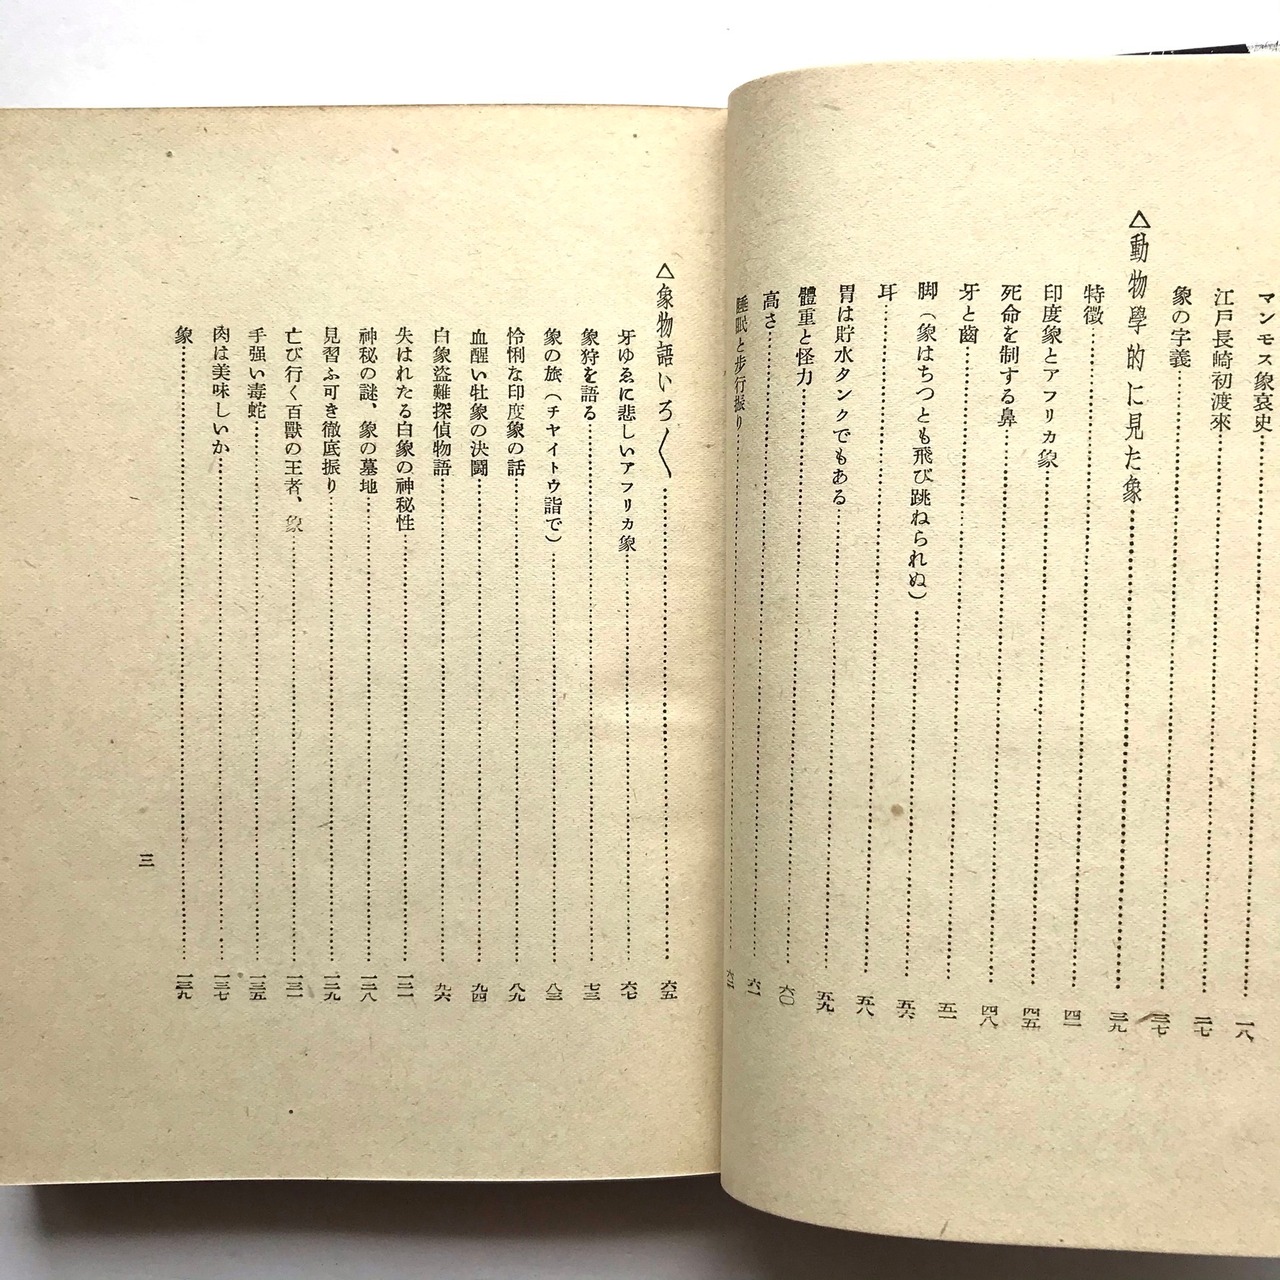 マンモス象哀史……一八
江戸長崎初渡來……二七
象の字義……三七
△動物學的に見た象……三九
特徴……四一
印度象とアフリカ象……四五
死命を制する鼻……四八
牙と齒……五一
脚(象はちつとも飛び跳ねられぬ)……五六
耳……五八
胃は貯水タンクでもある……五九
體重と怪力……六〇
高さ……六一
睡眠と步行振り……六三
△象物語いろ〱……六五
牙ゆゑに悲しいアフリカ象……六七
象狩を語る……七三
象の旅(チヤイトウ詣で)……八三
怜悧な印度象の話……八九
血醒い牡象の決鬪……九四
白象盜難探偵物語……九六
失はれたる白象の神秘性……一二一
神秘の謎、象の墓地……一二八
見習ふ可き徹底振り……一二九
亡び行く百獸の王者、象……一三一
手强い毒蛇……一三五
肉は美味しいか……一三七
象……一三九
三